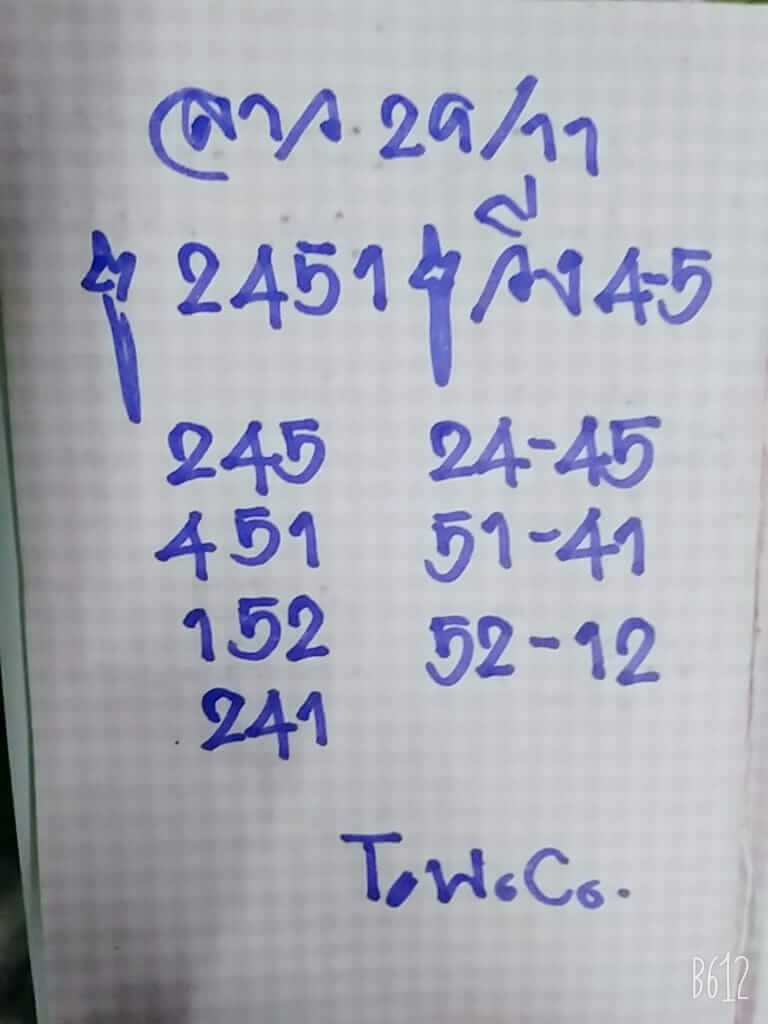 ลาว 29/11
2451 วิ่ง 4-5
245 24-45
451 51-41
152 52-12
241
T.พ.C.
B612